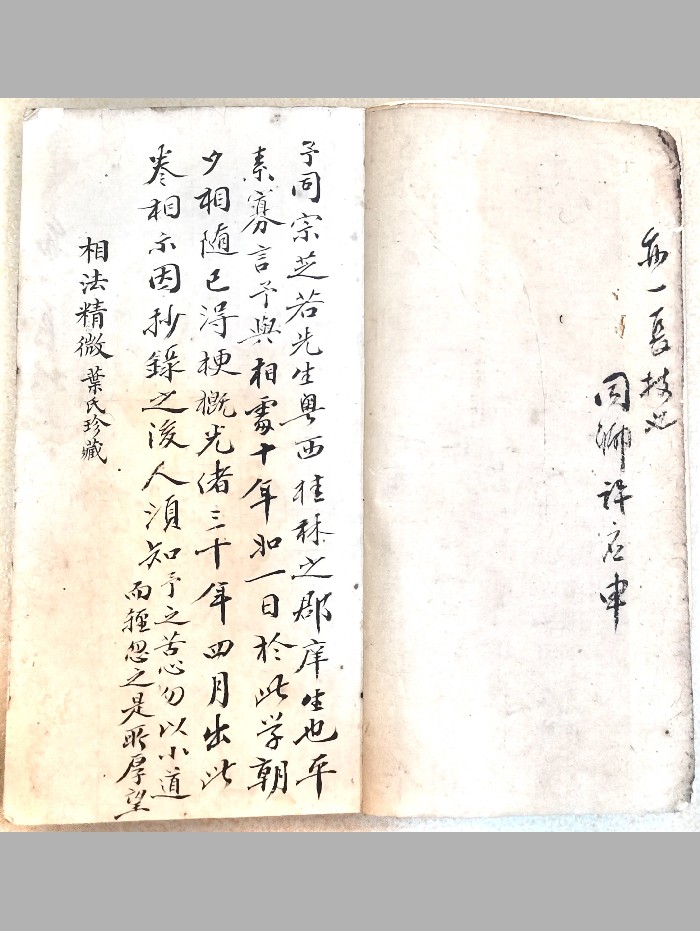 亦一長技也
同鄉許
予同宗芝若先生粵西桂林之郡庠生也平
素寡言予與相處十年如一日於此学朝
夕相随已得梗概光绪三十年四月出此
卷相示因抄錄之後人須知予之苦心勿以小道
而輕忽之是所厚望
相法精微葉氏珍藏